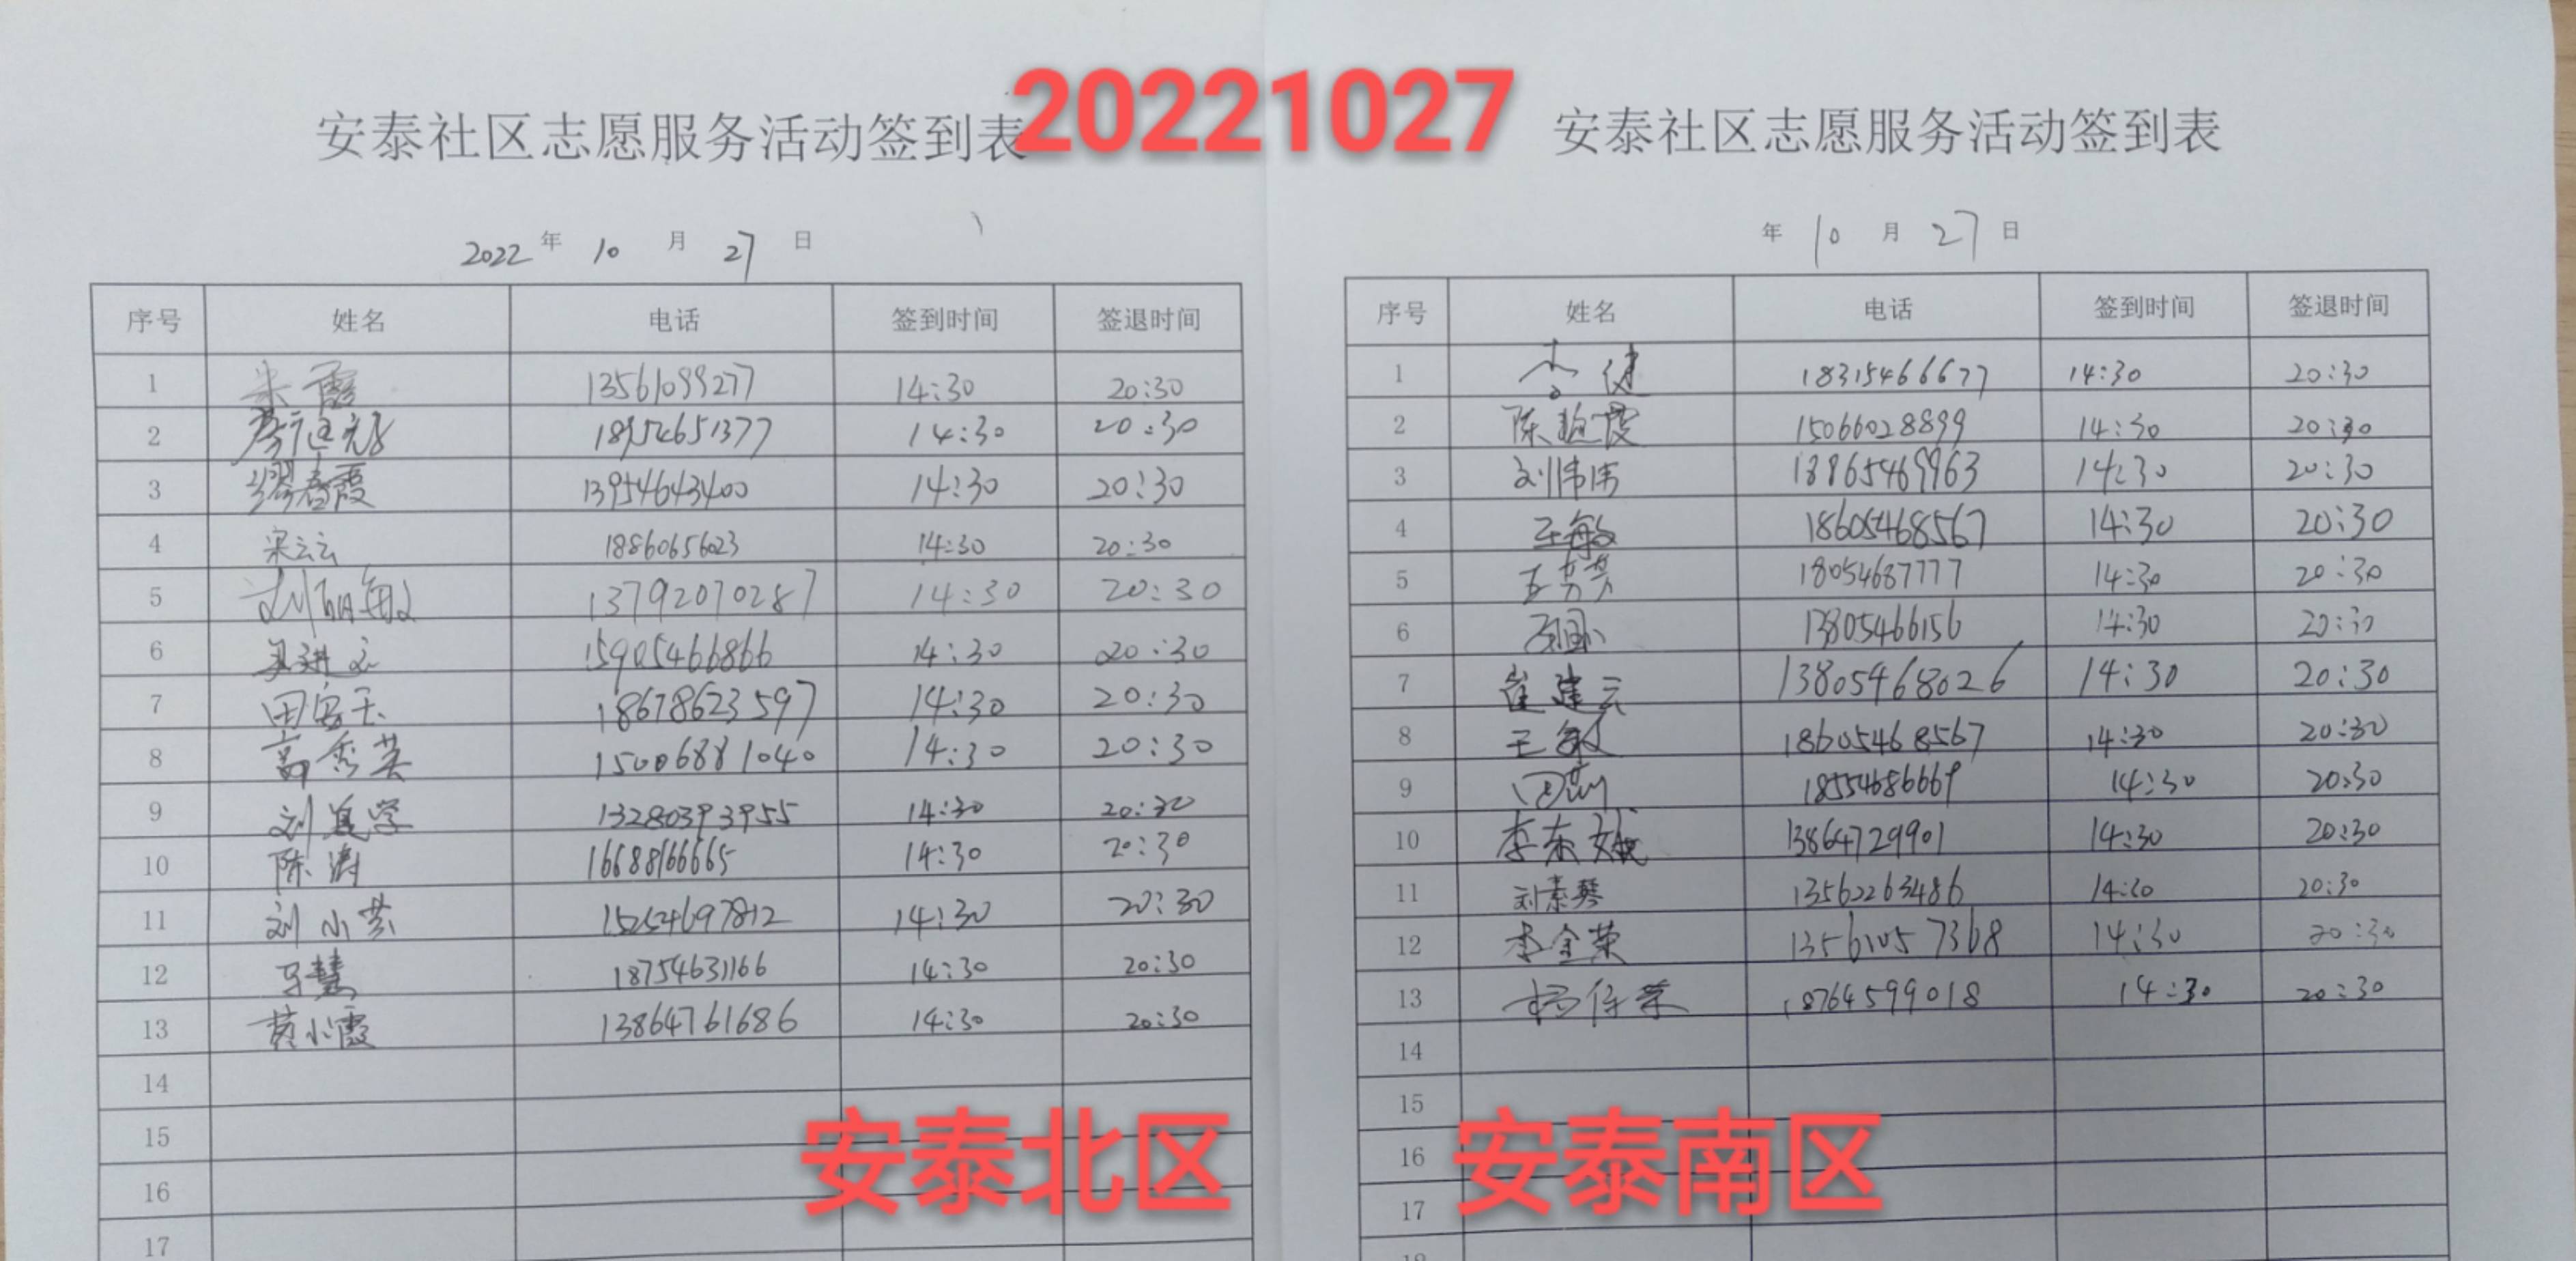 20221027
安泰社区志愿服务活动签到表
2022 年 10 月 27 日
序号 姓名 电话 签到时间 签退时间
1 朱霞 13561099277 14:30 20:30
2 18954651377 14:30 20:30
3 缪春霞 13954643400 14:30 20:30
4 宋云云 18860656023 14:30 20:30
5 刘丽敏 13792070287 14:30 20:30
6 15905466866 14:30 20:30
7 田宝玉 18678623597 14:30 20:30
8 高秀英 15006881040 14:30 20:30
9 刘美学 13280393955 14:30 20:30
10 陈涛 16688166665 14:30 20:30
11 刘小芸 15254697812 14:30 20:30
12 马慧 18754631166 14:30 20:30
13 蔡小霞 13864761686 14:30 20:30
14
15
16
17
安泰北区
安泰社区志愿服务活动签到表
年 10 月 27 日
序号 姓名 电话 签到时间 签退时间
1 李健 18315466677 14:30 20:30
2 陈艳霞 15066028899 14:30 20:30
3 刘伟伟 13865469963 14:30 20:30
4 王敏 18605468567 14:30 20:30
5 王芳芳 18054687777 14:30 20:30
6 13805466156 14:30 20:30
7 崔建云 13805468026 14:30 20:30
8 王敏 18605468567 14:30 20:30
9 田莉 18554686669 14:30 20:30
10 李东娥 13864729901 14:30 20:30
11 刘素琴 13562263486 14:30 20:30
12 李金荣 13561057368 14:30 20:30
13 杨保荣 18764599018 14:30 20:30
14
15
16
17
安泰南区